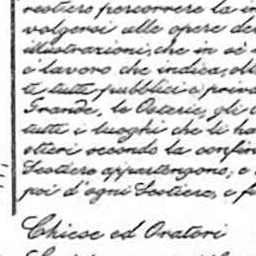 restiero percorrere la in
volgersi alle opere de
illustrazioni, che in sè
è lavoro che indica, ol
ti tutti pubblici o priva
Grande, le Osterie, gli
tutti i luoghi che li ha
stieri secondo la confin
Sestiere appartengono; e
poi d'ogni Sestiere, e f
Chiese ed Oratori